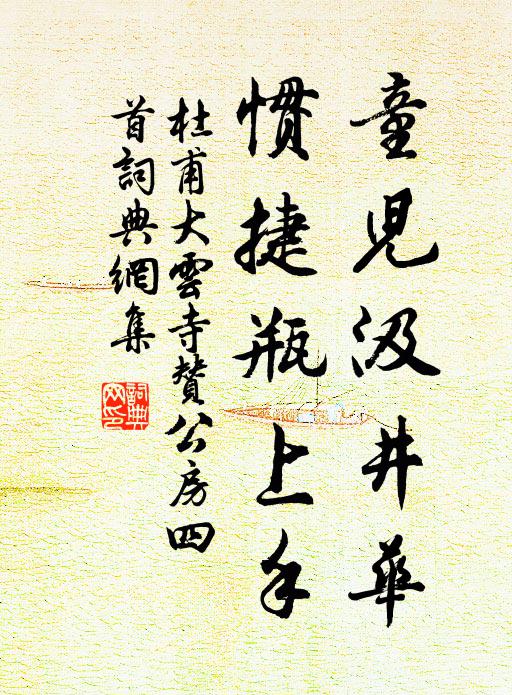 童兒汲井華
慣捷瓶上手
杜甫大雲寺贊公房四
首詞典網集
詞典
网印